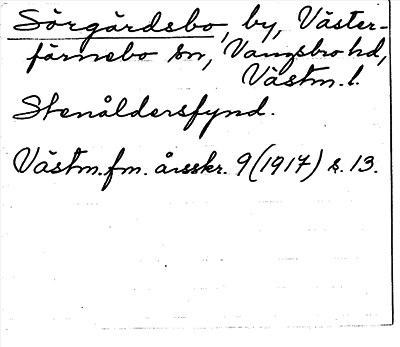 Sörgårdsbo, by, Väster-
färnebo sn, Vangsbro hd,
Västm. l.
Stenåldersfynd.
Västm. fm. årsskr. 9 (1917) s. 13.